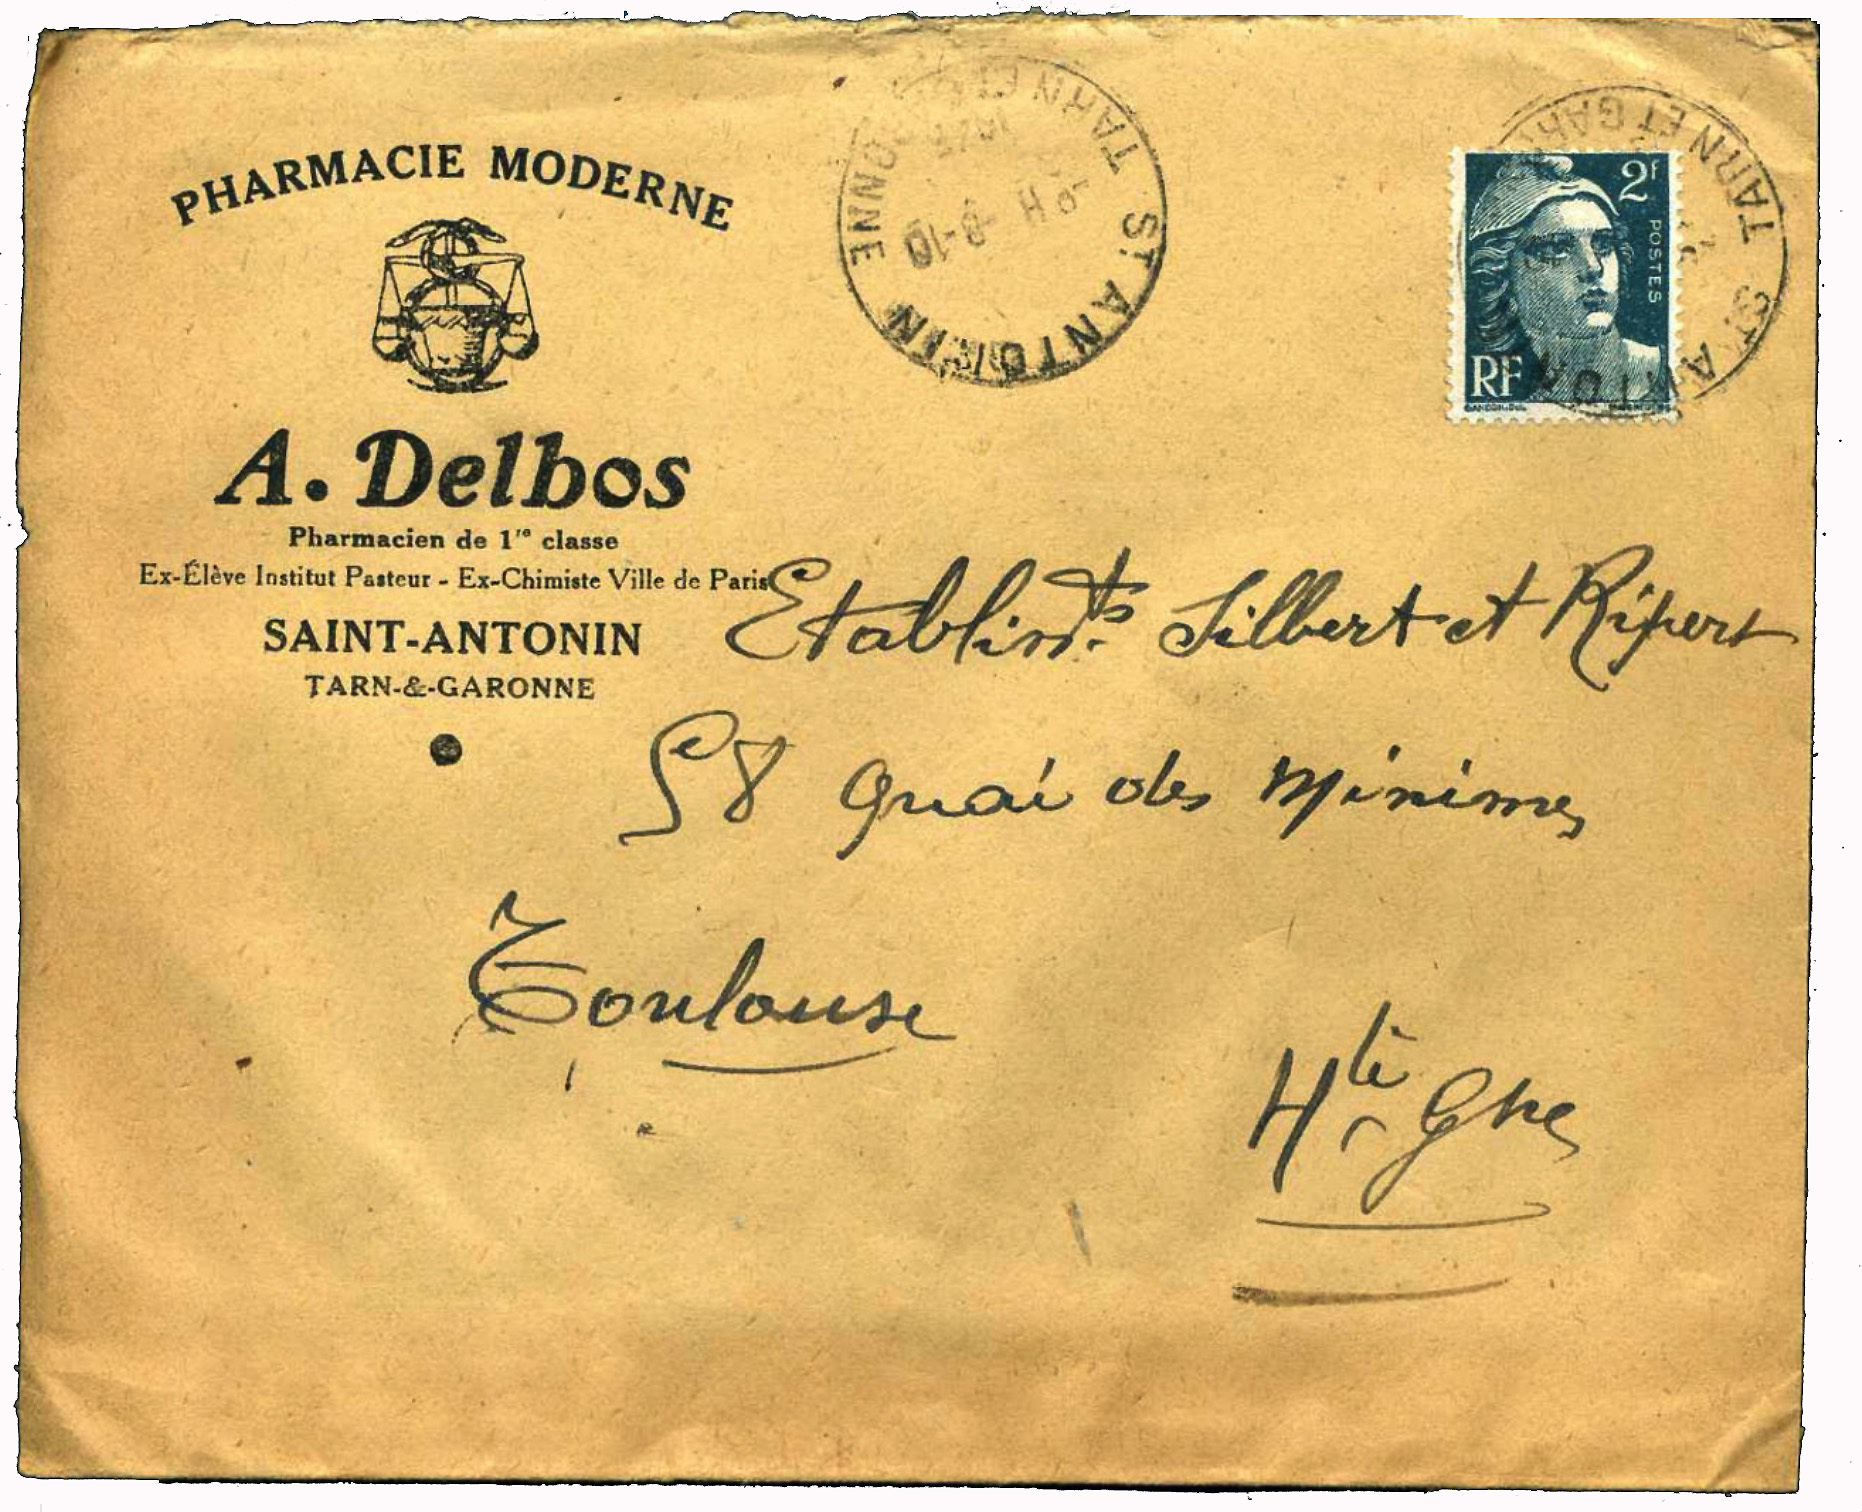 PHARMACIE MODERNE
A. Delbos
Pharmacien de 1re classe
Ex-Élève Institut Pasteur - Ex-Chimiste Ville de Paris
SAINT-ANTONIN
TARN-&-GARONNE
ST ANTONIN
TARN ET GARONNE
2f
POSTES
RF
ST ANTON
TARN ET GAR
Etablismts Silbert et Ripert
58 quai des Minimes
Toulouse
Hte Gne